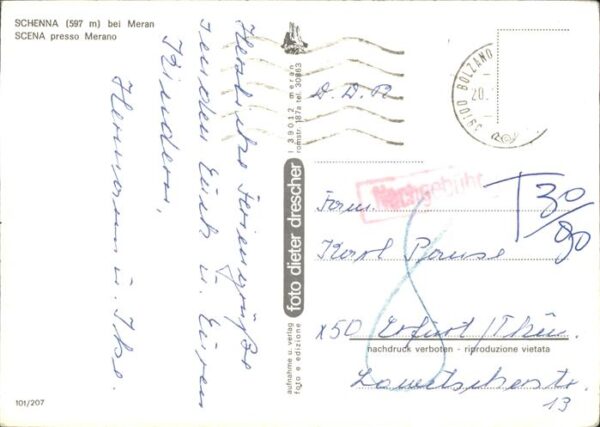 SCHENNA (597 m) bei Meran
SCENA presso Merano
Herzliche Feriengrüße
senden Euch u. Euren
Kindern,
Hermann u. Ilse.
I 39012 meran
romstr. 187a tel. 30863
foto dieter drescher
aufnahme u. verlag
foto e edizione
D. D. R
39100 BOLZANO
20.
Nachgebühr
T 30/80
8
Fam.
Karl Pause
x50 Erfurt/Thür.
nachdruck verboten - riproduzione vietata
13
101/207